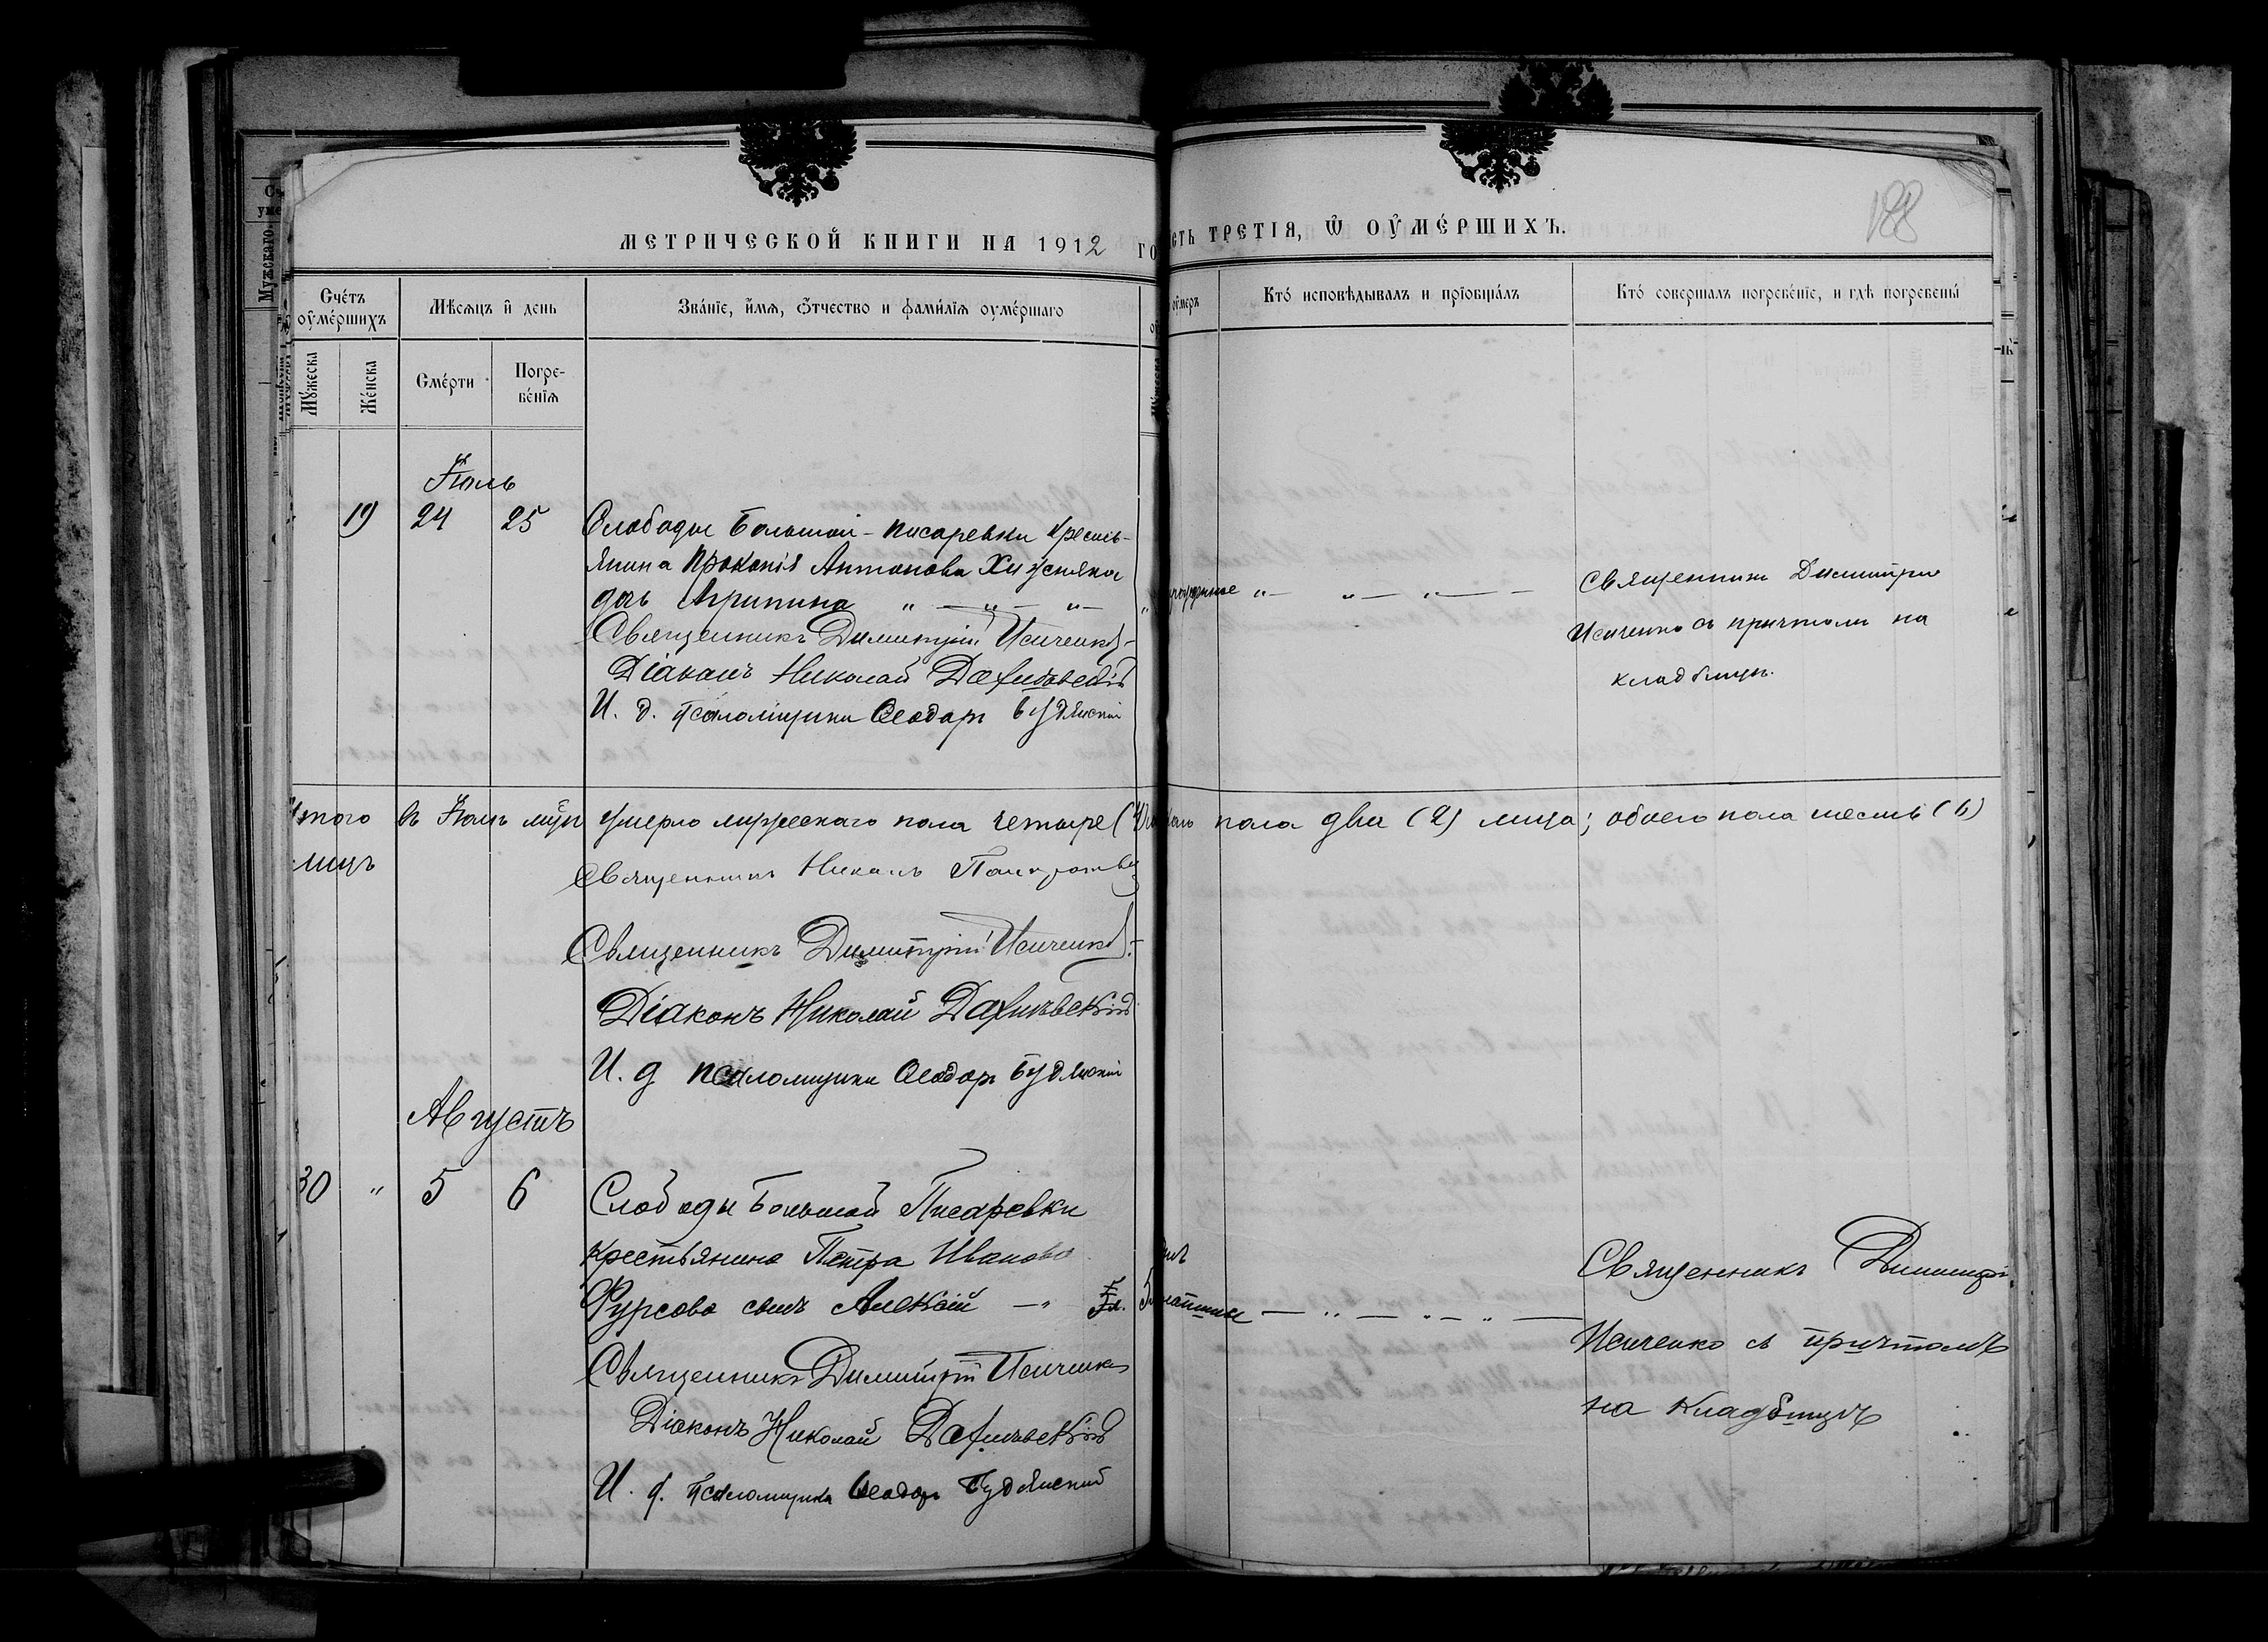 188
МЕТРИЧЕСКОЙ КНИГИ НА 1912 ГО
СТЬ ТРЕТІЯ, Ѿ ОУМЕРШИХЪ.
Счетъ оумершихъ
Мѣсяцъ и день
Званіе, имя, отчество и фамилія оумершаго
оумеръ
Кто исповѣдывалъ и пріобщалъ
Кто совершалъ погребеніе, и гдѣ погребены
Мужеска
Женска
Смерти
Погребенія
Іюль
19 24 25 Слободы Большой-Писаревки кресть-
янина Прокопія Антонова Хижняка
дочь Агрипина " — " — " —
Священникъ Димитрій Исиченко
Діаконъ Николай
И. д. псаломщика Ѳеодоръ Будянскій
Священникъ Димитрій
Исиченко съ причтомъ на
кладбищѣ.
Итого въ Іюлѣ м-цѣ умерло мужескаго пола четыре (4) пола два (2) лица; обоего пола шесть (6)
лицъ
Священникъ
Священникъ Димитрій Исиченко
Діаконъ Николай
И. д. псаломщика Ѳеодоръ Будянскій
Августъ
30 " 5 6 Слободы Большой Писаревки
крестьянина Петра Иванова
Фурсова сынъ Алексій
Священникъ Димитрій Исиченко
Діаконъ Николай
И. д. псаломщика Ѳеодоръ Будянскій
Священникъ Димитрій
Исиченко съ причтомъ
на кладбищѣ